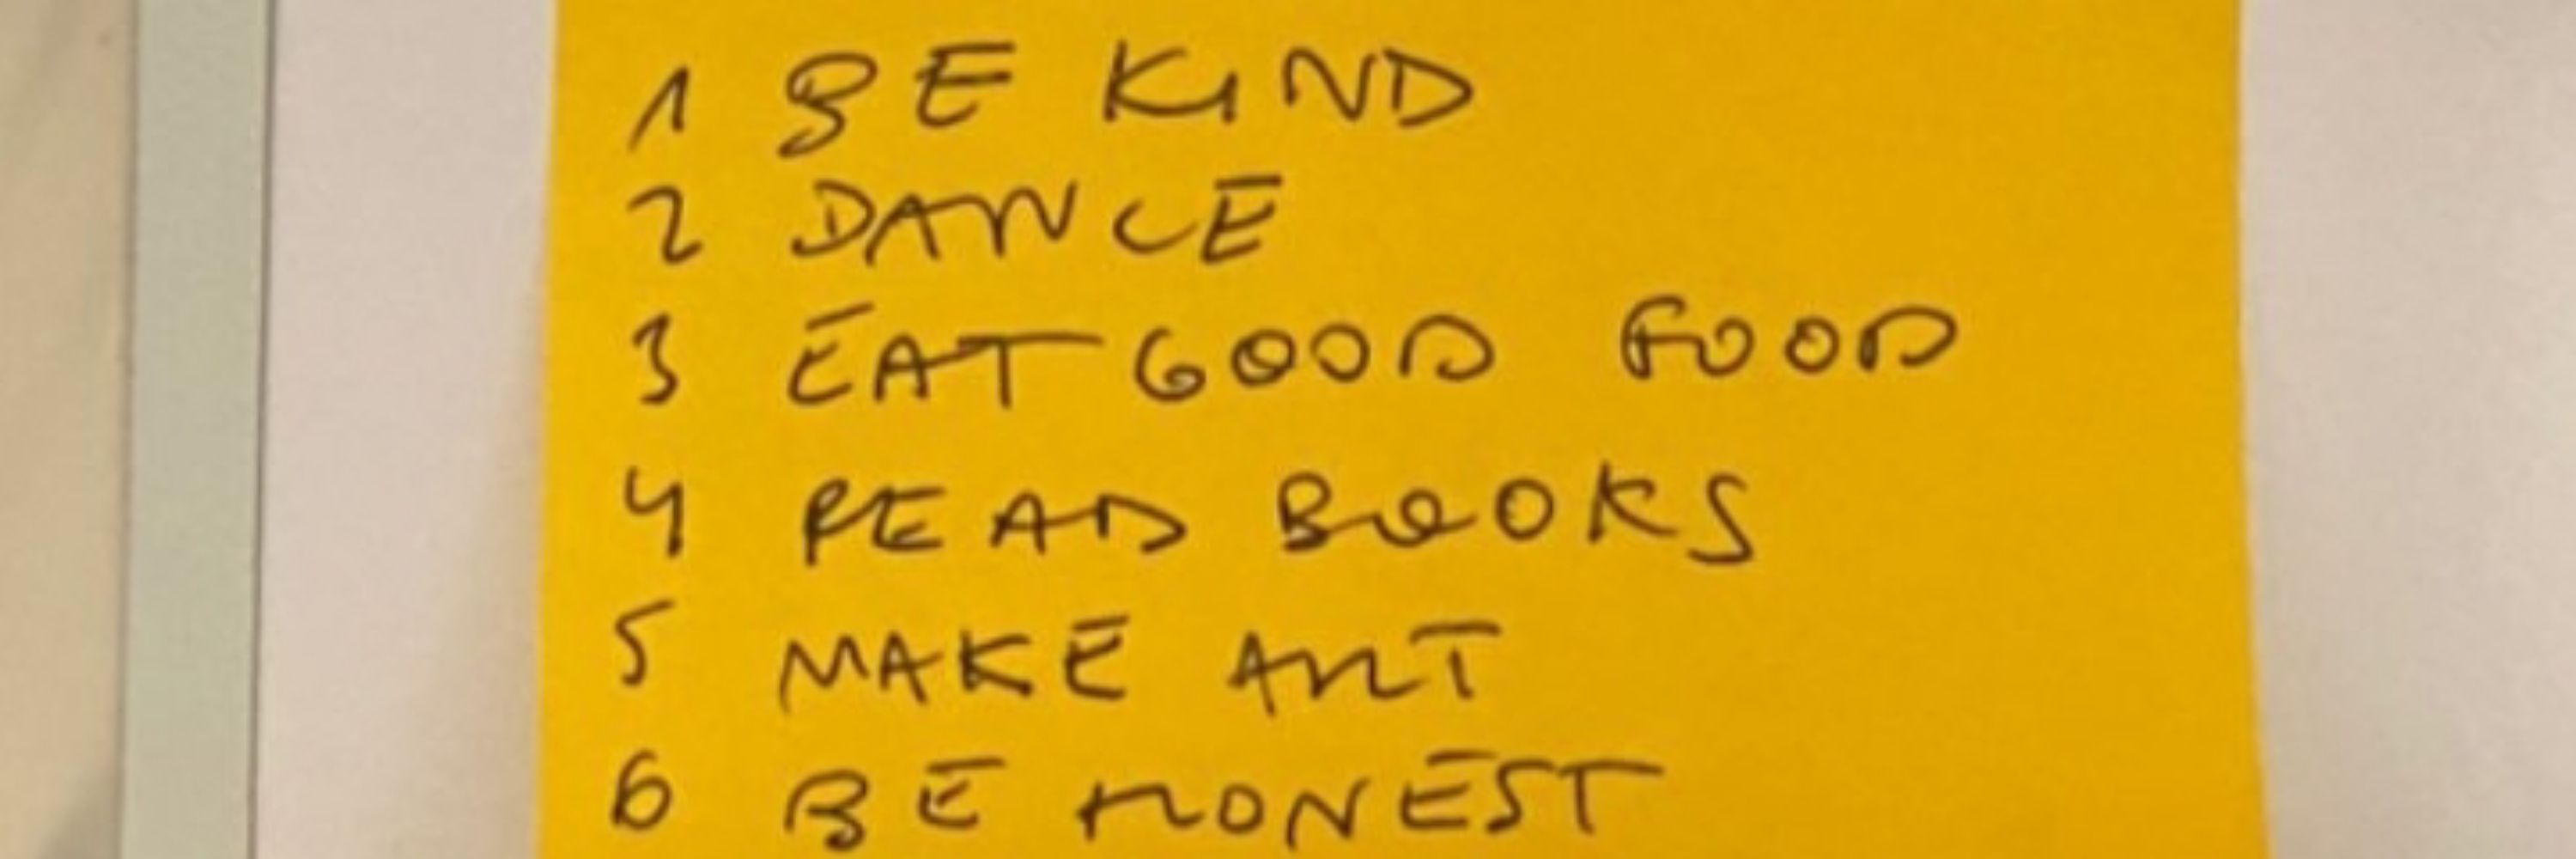 1 BE KIND
2 DANCE
3 EAT GOOD FOOD
4 READ BOOKS
5 MAKE ART
6 BE HONEST